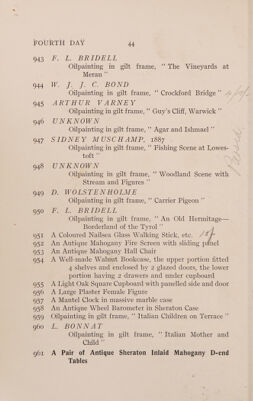 FOURTH DAY 44
943 F. L. BRIDELL
Oilpainting in gilt frame, " The Vineyards at
Meran "
944 W. J. J. C. BOND
Oilpainting in gilt frame, " Crockford Bridge "
945 ARTHUR VARNEY
Oilpainting in gilt frame, " Guy's Cliff, Warwick "
946 UNKNOWN
Oilpainting in gilt frame, " Agar and Ishmael "
947 SIDNEY MUSCHAMP, 1887
Oilpainting in gilt frame, " Fishing Scene at Lowes-
toft "
948 UNKNOWN
Oilpainting in gilt frame, " Woodland Scene with
Stream and Figures "
949 D. WOLSTENHOLME
Oilpainting in gilt frame, " Carrier Pigeon "
950 F. L. BRIDELL
Oilpainting in gilt frame, " An Old Hermitage—
Borderland of the Tyrol "
951 A Coloured Nailsea Glass Walking Stick, etc.
952 An Antique Mahogany Fire Screen with sliding panel
953 An Antique Mahogany Hall Chair
954 A Well-made Walnut Bookcase, the upper portion fitted
4 shelves and enclosed by 2 glazed doors, the lower
portion having 2 drawers and under cupboard
955 A Light Oak Square Cupboard with panelled side and door
956 A Large Plaster Female Figure
957 A Mantel Clock in massive marble case
958 An Antique Wheel Barometer in Sheraton Case
959 Oilpainting in gilt frame, " Italian Children on Terrace "
960 L. BONNAT
Oilpainting in gilt frame, " Italian Mother and
Child "
961 A Pair of Antique Sheraton Inlaid Mahogany D-end
Tables